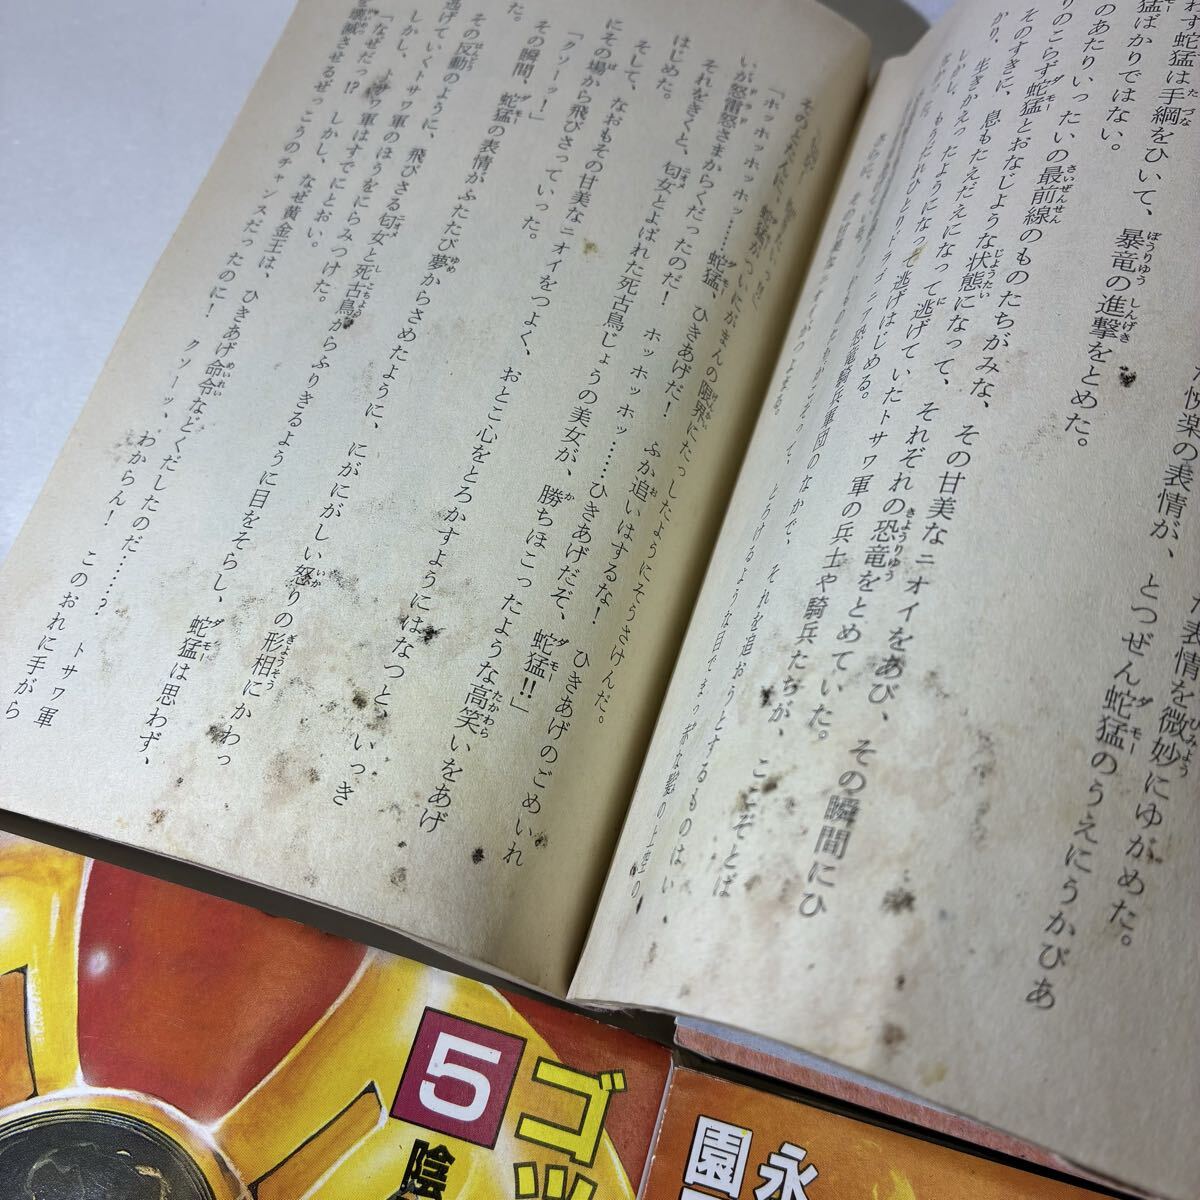 た悦楽の表情が、とつぜん蛇猛のうえにうかびあ
た表情を微妙にゆがめた。
れず蛇猛は手綱をひいて、暴竜の進撃をとめた。
ばかりではない。
のあたりいったいの最前線のものたちがみな、その甘美なニオイをあび、その瞬間にひ
りのこらず蛇猛とおなじような状態になって、それぞれの恐竜をとめていた。
そのすきに、息もたえだえになって逃げていたトサワ軍の兵士や騎兵たちが、ここぞとば
かり、生きかえったようになって逃げはじめる。
しかし、もうだれひとりトライニフ恐竜騎兵軍団のなかで、それを追おうとするものはい
そのとたんに、蛇猛がついにがまんの限界にたっしたようにそうさけんだ。
「ホッホッホッホッ……蛇猛、ひきあげだ！　ふか追いはするな！　ひきあげのごめいれ
いが怒雷怒さまからくだったのだ！　ホッホッホッ……ひきあげだぞ、蛇猛!!」
それをきくと、匂女とよばれた死古鳥じょうの美女が、勝ちほこったような高笑いをあげ
はじめた。
そして、なおもその甘美なニオイをつよく、おとこ心をとろかすようにはなつと、いっき
にその場から飛びさっていった。
「クソーッ！」
その瞬間、蛇猛の表情がふたたび夢からさめたように、にがにがしい怒りの形相にかわっ
た。
その反動のように、飛びさる匂女と死古鳥からふりきるように目をそらし、蛇猛は思わず、
逃げていくトサワ軍のほうをにらみつけた。
しかし、トサワ軍はすでにとおい。
「なぜだっ!?　しかし、なぜ黄金王は、ひきあげ命令などくだしたのだ……？　トサワ軍
を壊滅させるぜっこうのチャンスだったのに！　クソーッ、わからん！　このおれに手がら
5
ゴッ
陰
永
園